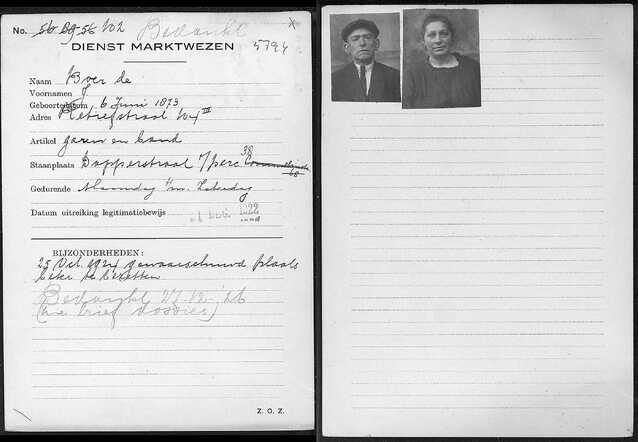 No. 56 89-56 102 Bedankt
DIENST MARKTWEZEN 5794
Naam Boer de
Voornamen J
Geboortedatum 6 Juni 1873
Adres Retiefstraat 104 III
Artikel garen en band
Staanplaats Dapperstraat 1/perc 38
Gedurende Maandag t/m Zaterdag
Datum uitreiking legitimatiebewijs 1922
BIJZONDERHEDEN:
25 Oct. 1924 gewaarschuwd plaats
beter te bezetten
Bedankt 27-12-'26
(zie brief dossier)
Z. O. Z.